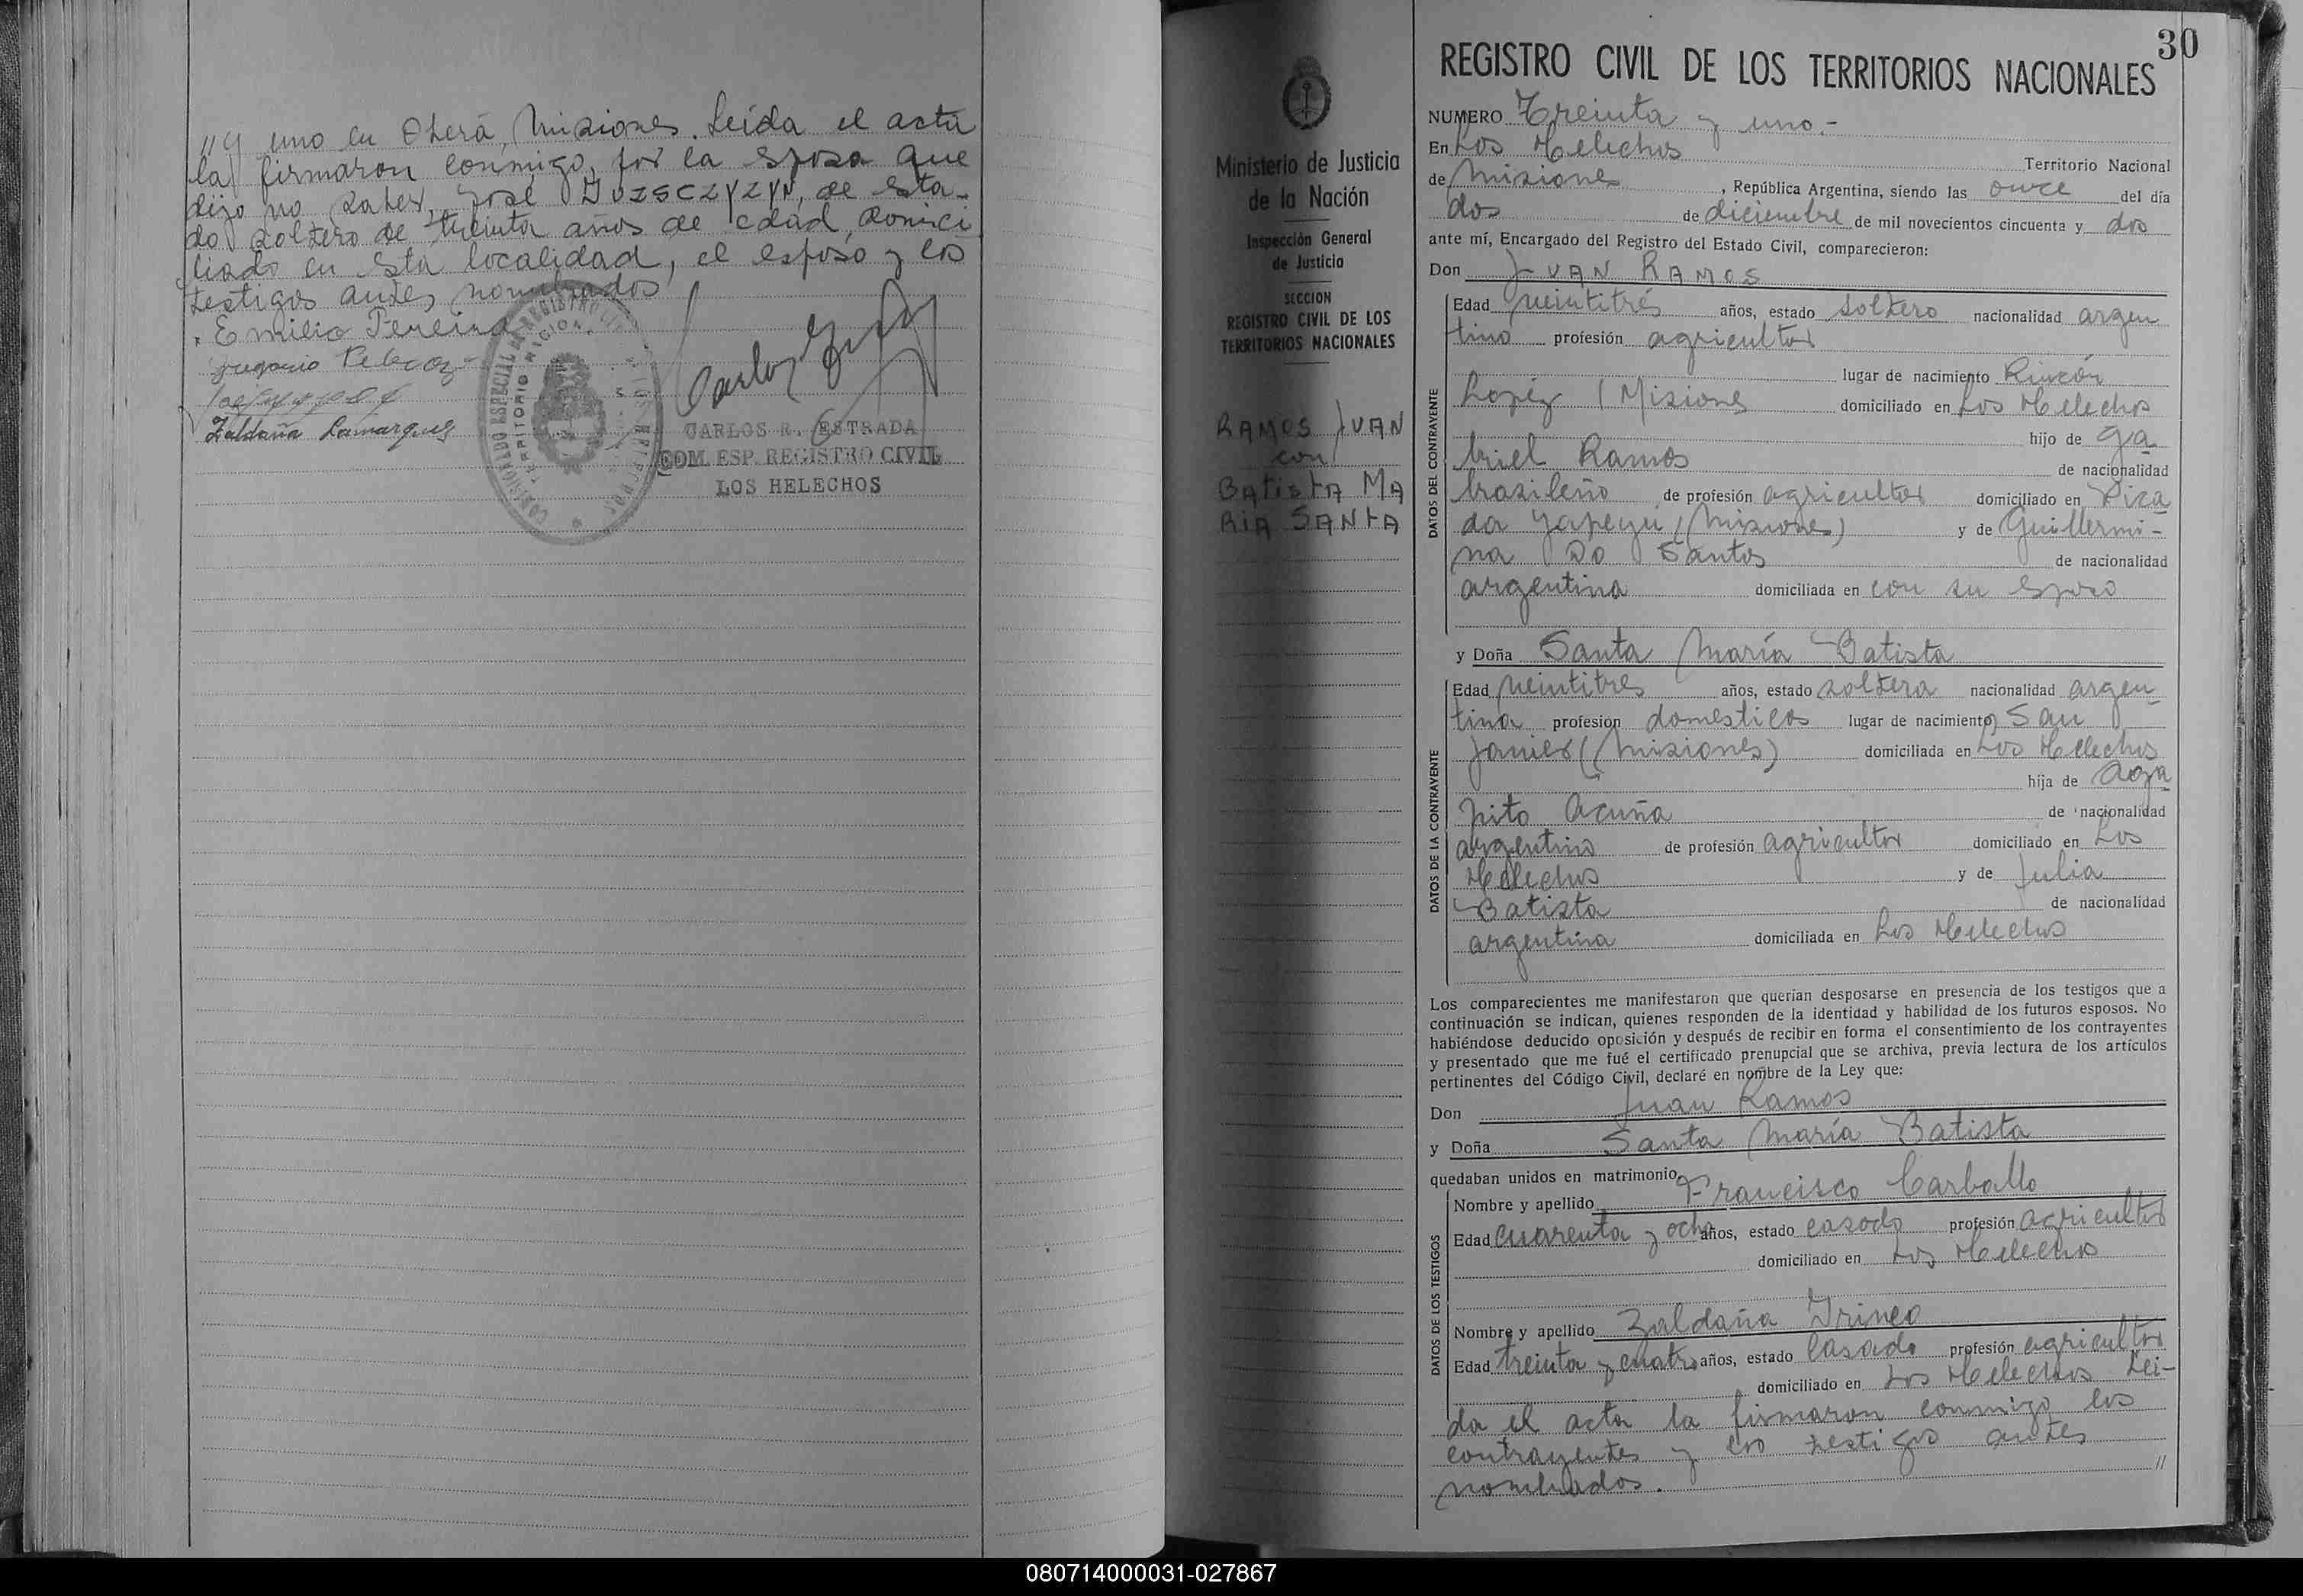 "y uno en Oberá, Misiones. Leída el acta
la firmaron conmigo, por la esposa que
dijo no saber, José DUZSCZYZYN, de esta-
do soltero de treinta años de edad, domici
liado en esta localidad, el esposo y los
testigos antes nombrados
Emilio Pereira
Gregorio
Zaldaña Lamarques
COMISIONADO ESPECIAL REGISTRO CIVIL
TERRITORIO NACION
MISIONES
CARLOS R. ESTRADA
COM. ESP. REGISTRO CIVIL
LOS HELECHOS
Ministerio de Justicia
de la Nación
Inspección General
de Justicia
SECCION
REGISTRO CIVIL DE LOS
TERRITORIOS NACIONALES
RAMOS JUAN
con
BATISTA MA
RIA SANTA
30
REGISTRO CIVIL DE LOS TERRITORIOS NACIONALES
NUMERO Treinta y uno.-
En Los Helechos Territorio Nacional
de Misiones, República Argentina, siendo las once del día
dos de diciembre de mil novecientos cincuenta y dos
ante mí, Encargado del Registro del Estado Civil, comparecieron:
Don JUAN RAMOS
DATOS DEL CONTRAYENTE
Edad veintitrés años, estado soltero nacionalidad argen
tino profesión agricultor
lugar de nacimiento Rincón
López (Misiones domiciliado en Los Helechos
hijo de Ga
briel Ramos de nacionalidad
brasileño de profesión agricultor domiciliado en Pica
da Yapeyú (Misiones) y de Guillermi-
na Do Santos de nacionalidad
argentina domiciliada en con su esposo
y Doña Santa María Batista
DATOS DE LA CONTRAYENTE
Edad veintitres años, estado soltera nacionalidad argen
tina profesión domesticos lugar de nacimiento San
Javier (Misiones) domiciliada en Los Helechos
hija de Aga
pito Acuña de nacionalidad
argentino de profesión agricultor domiciliado en Los
Helechos y de Julia
Batista de nacionalidad
argentina domiciliada en Los Helechos
Los comparecientes me manifestaron que querían desposarse en presencia de los testigos que a
continuación se indican, quienes responden de la identidad y habilidad de los futuros esposos. No
habiéndose deducido oposición y después de recibir en forma el consentimiento de los contrayentes
y presentado que me fué el certificado prenupcial que se archiva, previa lectura de los artículos
pertinentes del Código Civil, declaré en nombre de la Ley que:
Don Juan Ramos
y Doña Santa María Batista
quedaban unidos en matrimonio
DATOS DE LOS TESTIGOS
Nombre y apellido Francisco Carballo
Edad cuarenta y ocho años, estado casado profesión agricultor
domiciliado en Los Helechos
Nombre y apellido Zaldaña Irineo
Edad treinta y cuatro años, estado casado profesión agricultor
domiciliado en Los Helechos Leí-
da el acta la firmaron conmigo los
contrayentes y los testigos antes
nombrados. "
080714000031-027867